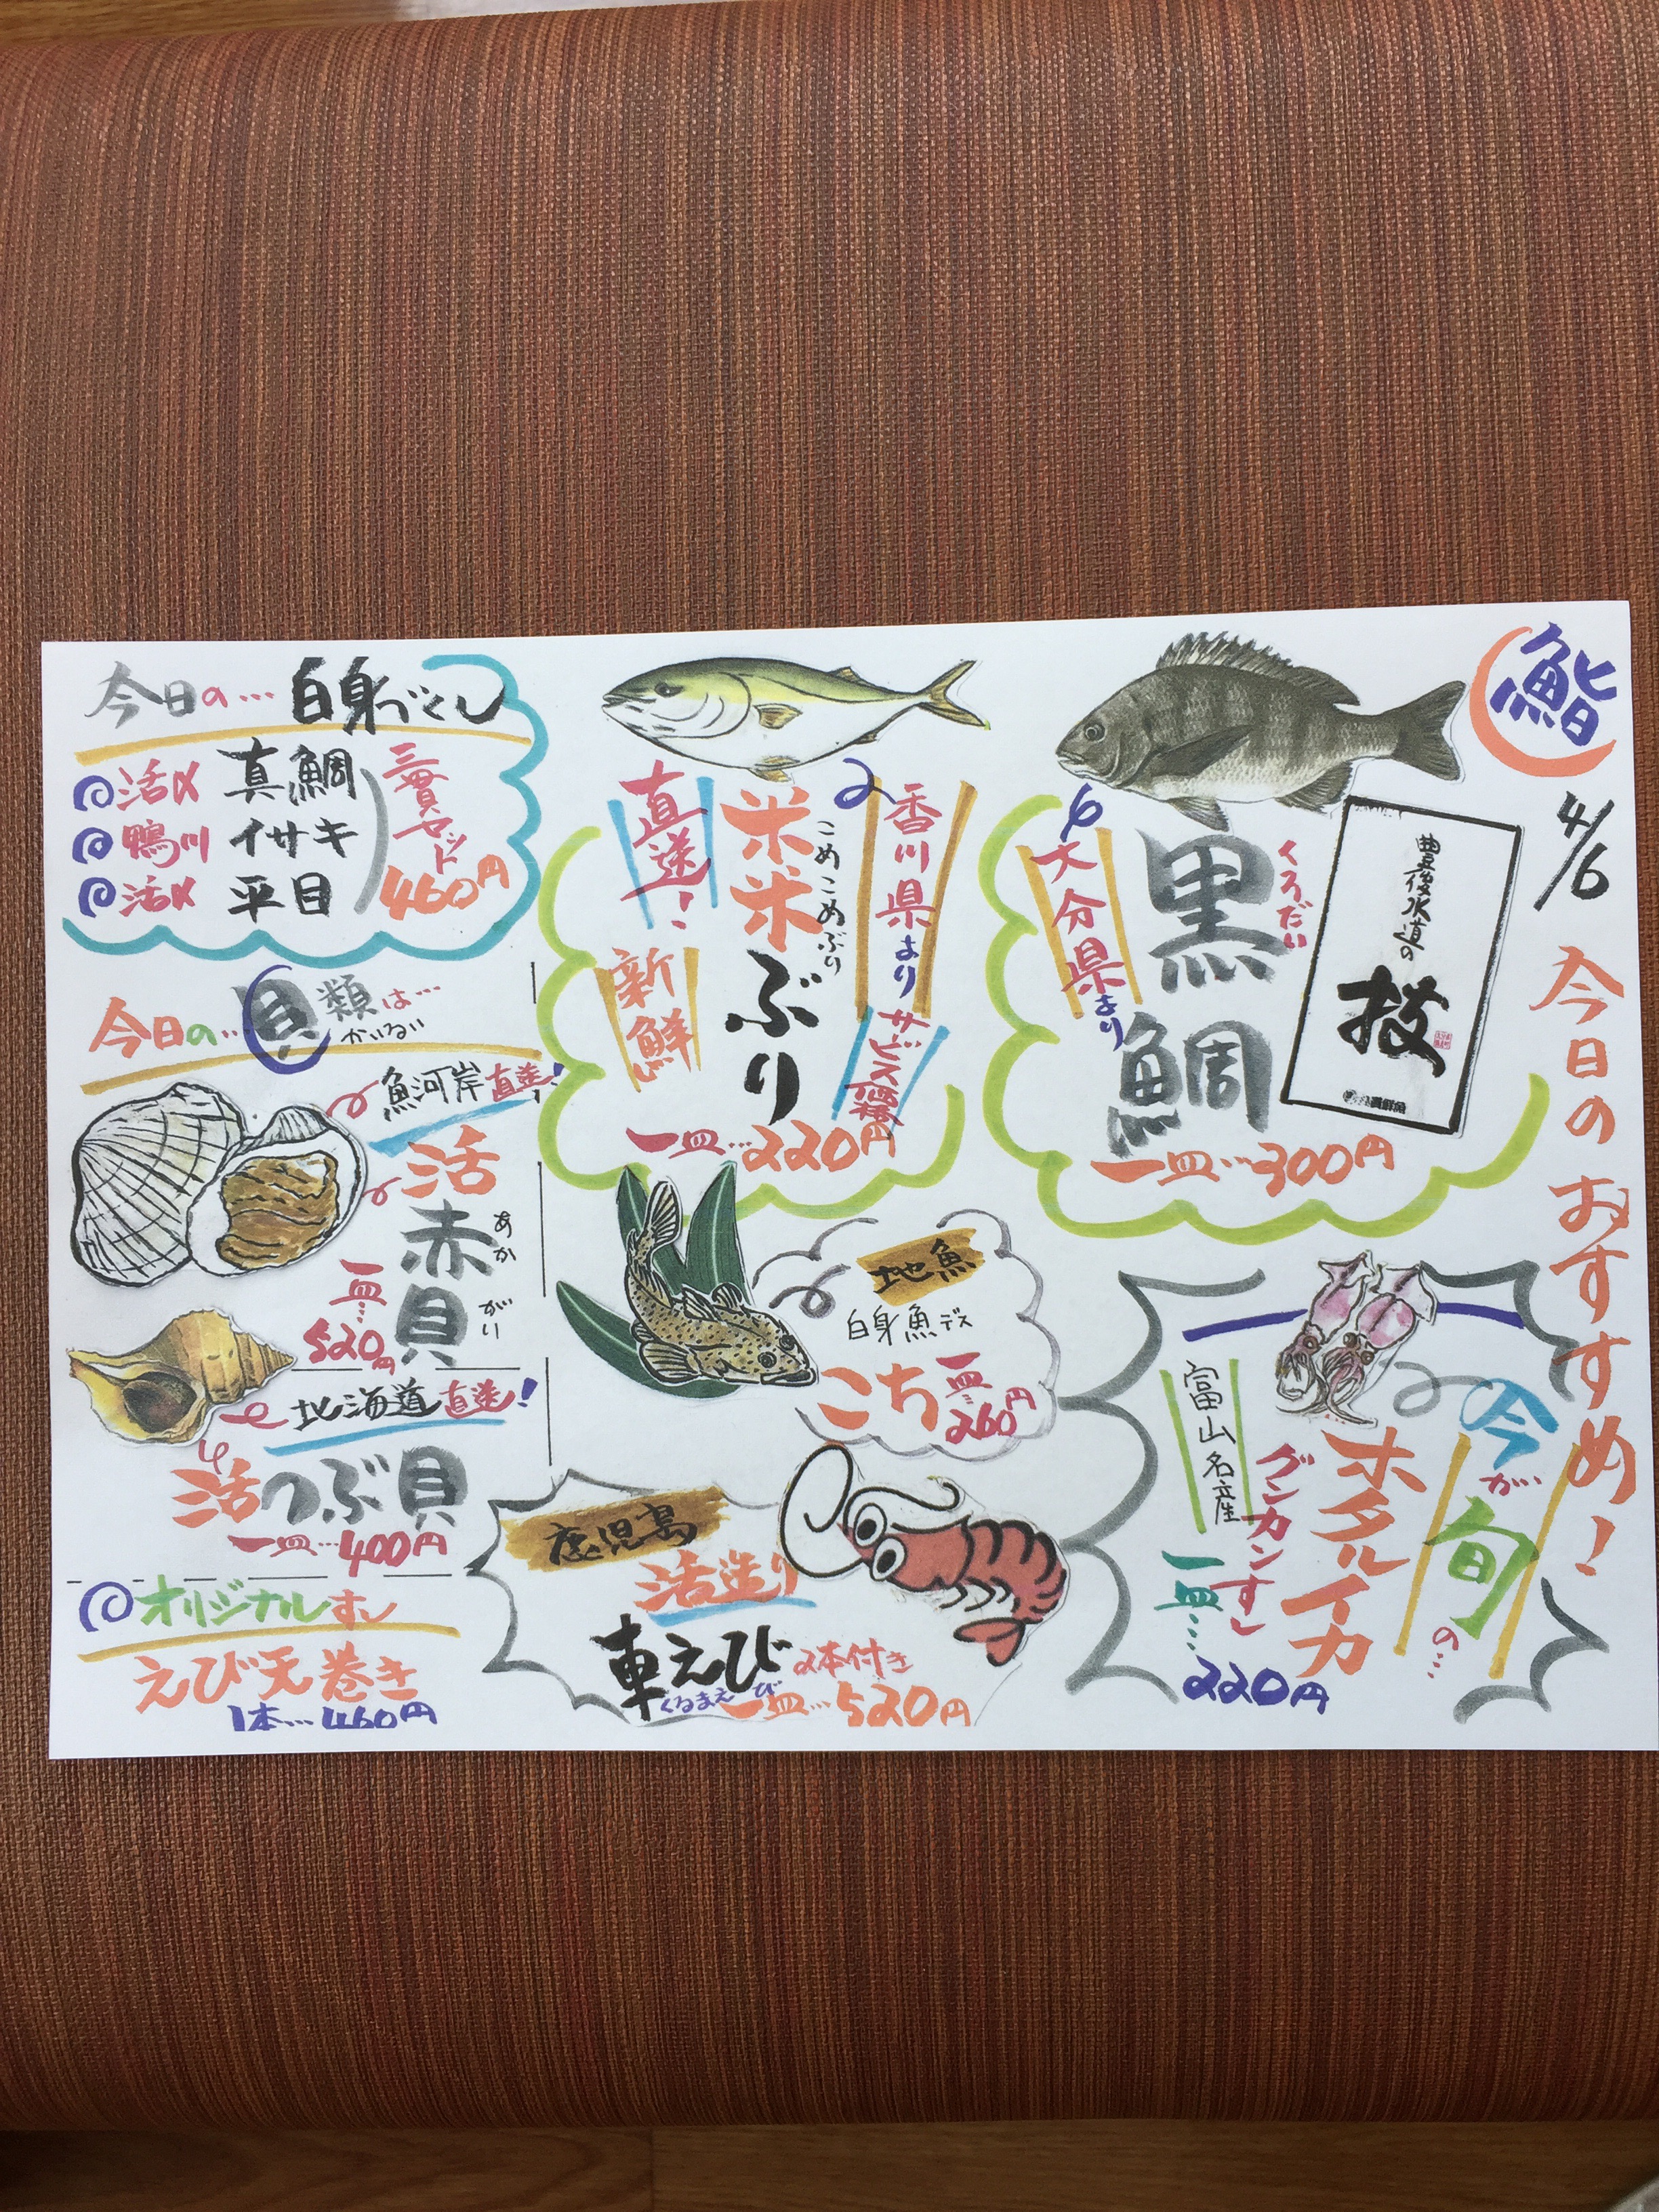 鮨
4/6
今日のおすすめ！
豊後水道の
技
くろだい
黒鯛
大分県より
一皿…300円
香川県より
サービス価格
こめこめぶり
米米ぶり
直送！
新鮮
一皿…220円
今が
旬の…
ホタルイカ
グンカンすし
富山名産
一皿…
220円
地魚
白身魚デス
こち
一皿…
260円
鹿児島
活造り
車えび 2本付き
くるまえび
一皿…520円
今日の…白身づくし
活〆 真鯛
鴨川 イサキ
活〆 平目
三貫セット
460円
今日の…貝類は…
かいるい
魚河岸直送！
活赤貝
あかがい
一皿…
520円
北海道直送！
活つぶ貝
一皿…400円
オリジナルすし
えび天巻き
1本…460円